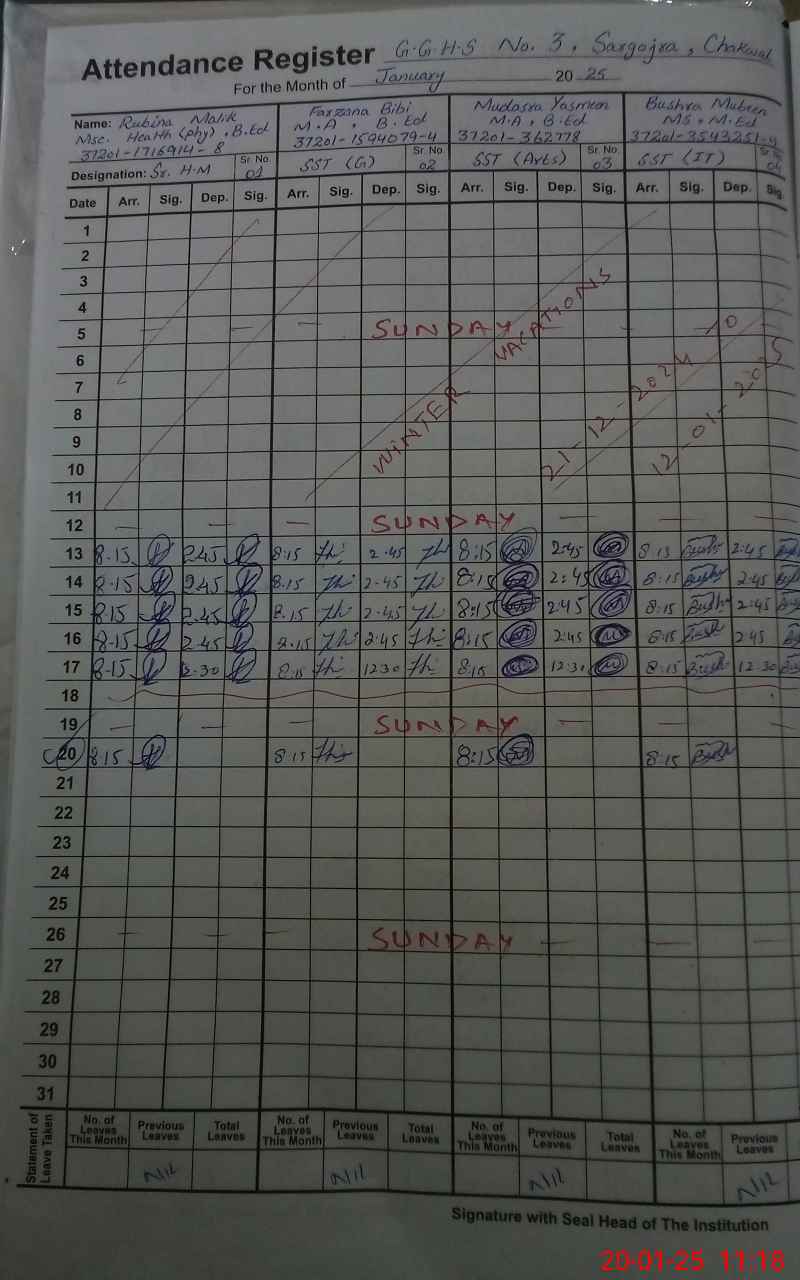 Attendance Register G.G.H.S No. 3, Sargojra, Chakwal
For the Month of January 2025
Name: Rubina Malik Farzana Bibi Mudasra Yasmeen Bushra Mubeen
Msc. Health (phy), B.Ed M.A, B.Ed M.A, B.Ed MS, M.Ed
37201-1716914-8 37201-1594079-4 37201-362778 37201-3543251-4
Designation: Sr. H.M Sr. No. 01 SST (G) Sr. No. 02 SST (Arts) Sr. No. 03 SST (IT) Sr. No. 04
Date Arr. Sig. Dep. Sig. Arr. Sig. Dep. Sig. Arr. Sig. Dep. Sig. Arr. Sig. Dep. Sig.
1
2
3
4
5 SUNDAY
6
7
8
9
10
11
WINTER VACATIONS
21-12-2024 TO
12-01-2025
12 SUNDAY
13 8.15 2.45 8:15 2.45 8:15 2:45 8:15 Bush 2:45
14 8.15 2.45 8.15 2.45 8:15 2:45 8:15 Bush 2:45
15 8.15 2.45 8.15 2.45 8:15 2:45 8:15 Bush 2:45
16 8.15 2.45 8.15 2:45 8:15 2:45 8:15 Bush 2:45
17 8.15 8:15 1230 8:15 12:30 8:15 Bush 12:30
18
19 SUNDAY
20 8.15 8:15 8:15 8:15 Bush
21
22
23
24
25
26 SUNDAY
27
28
29
30
31
Statement of Leave Taken
No. of Leaves This Month Previous Leaves Total Leaves No. of Leaves This Month Previous Leaves Total Leaves No. of Leaves This Month Previous Leaves Total Leaves No. of Leaves This Month Previous Leaves
Nil Nil Nil Nil
Signature with Seal Head of The Institution
20-01-25 11:18